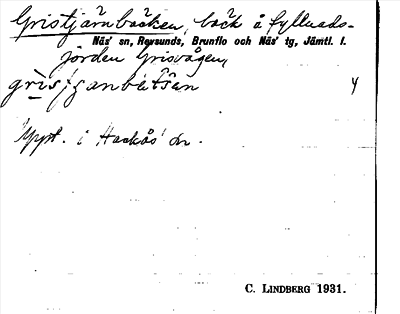 Gristjärnbäcken, bäck å fyllnads-
Näs' sn, Revsunds, Brunflo och Näs' tg, Jämtl. l.
jorden Grisvågen,
4
Uppt. i Hackås' sn.
C. LINDBERG 1931.